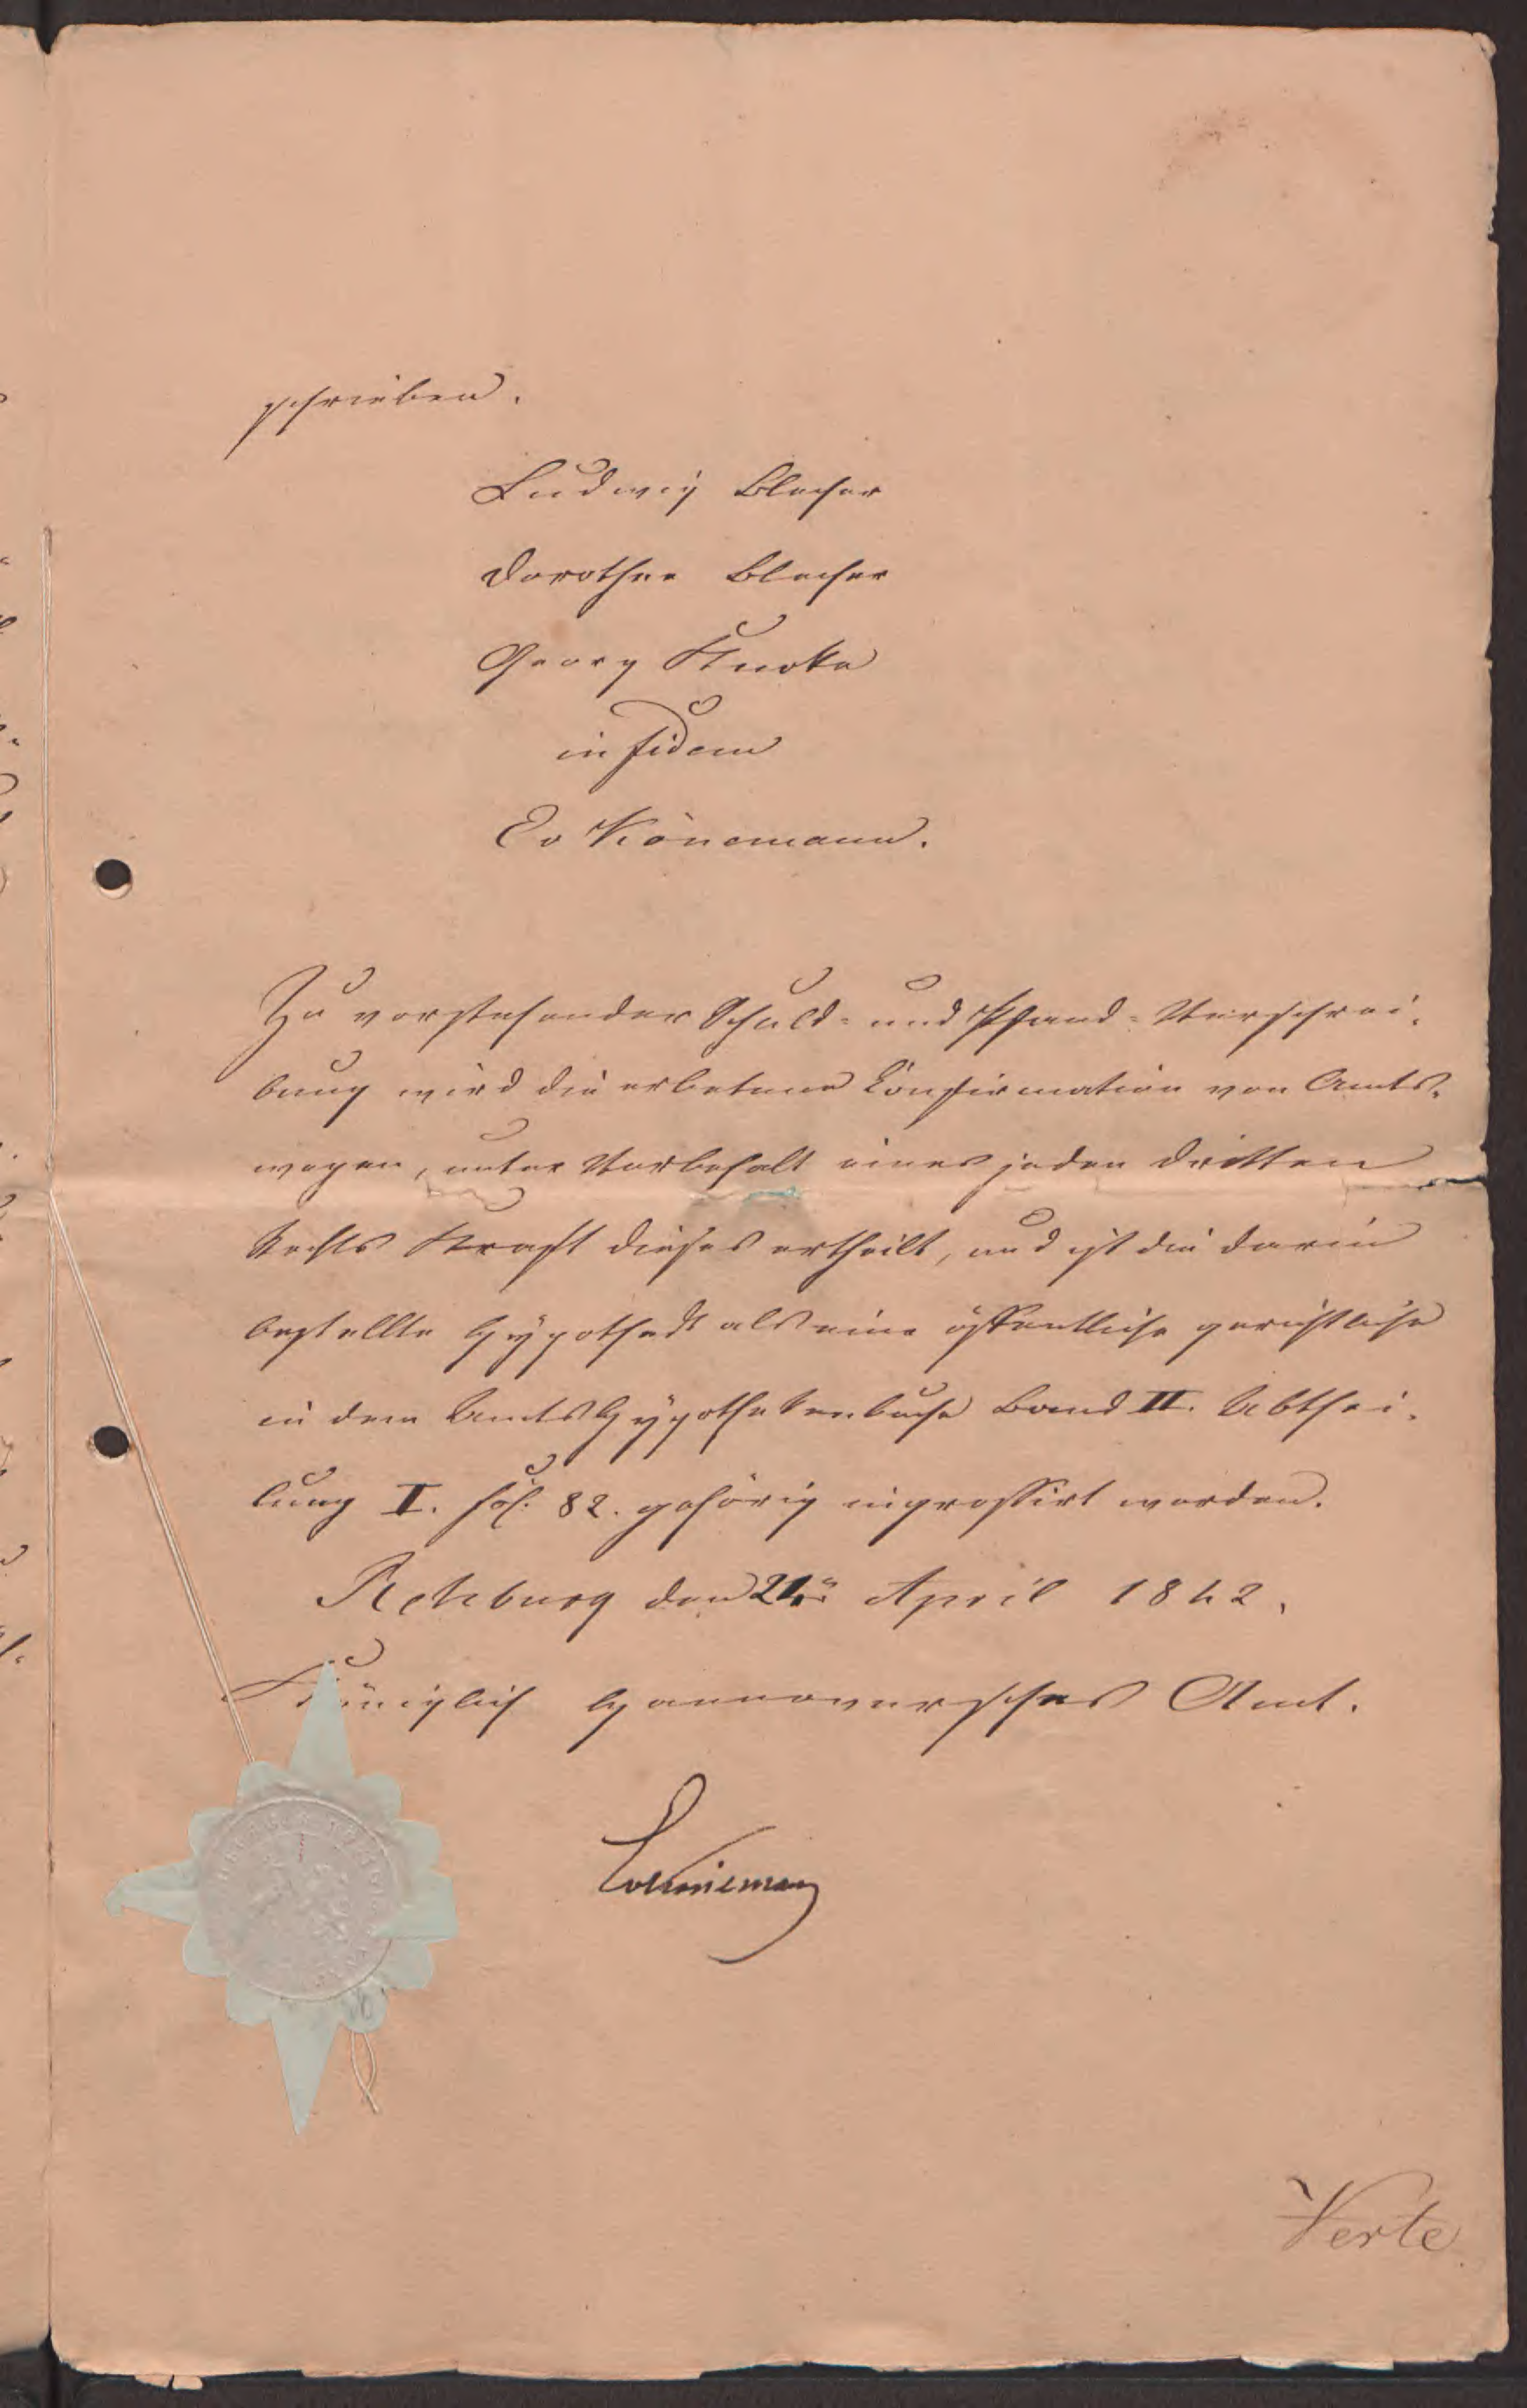 schrieben.
Ludwig Blecher
Dorothee Blecher
Georg Knoke
in fidem
Könemann.
Zu vorstehender Schuld- und Pfand-Verschrei-
bung wird die erbetene Confirmation von Amts-
wegen, unter Vorbehalt eines jeden dritten
Rechts Kraft dieses ertheilt, und ist die darin
bestellte Hypothek als eine öffentliche gerichtliche
in dem Amts Hypothekenbuche Band II. Abthei-
lung I. fol. 82. gehörig ingrossirt worden.
Rehburg den April 1842.
Königlich Hannoversches Amt.
Verte